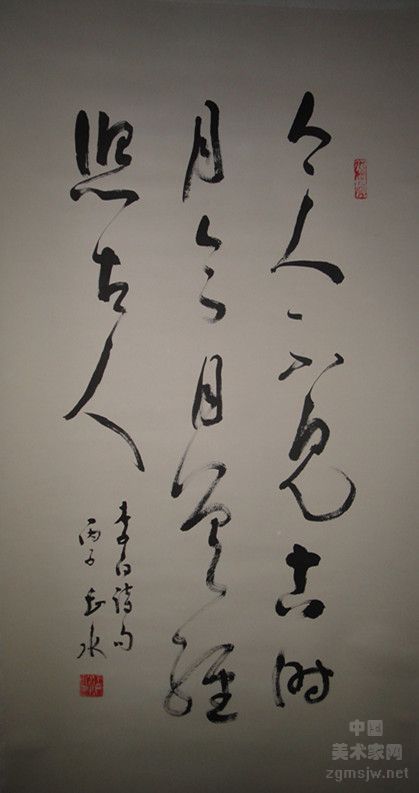 今人不見古时
月今月曾经
照古人
李白诗句
丙子 水
中国
美术家网
zgmsjw.net